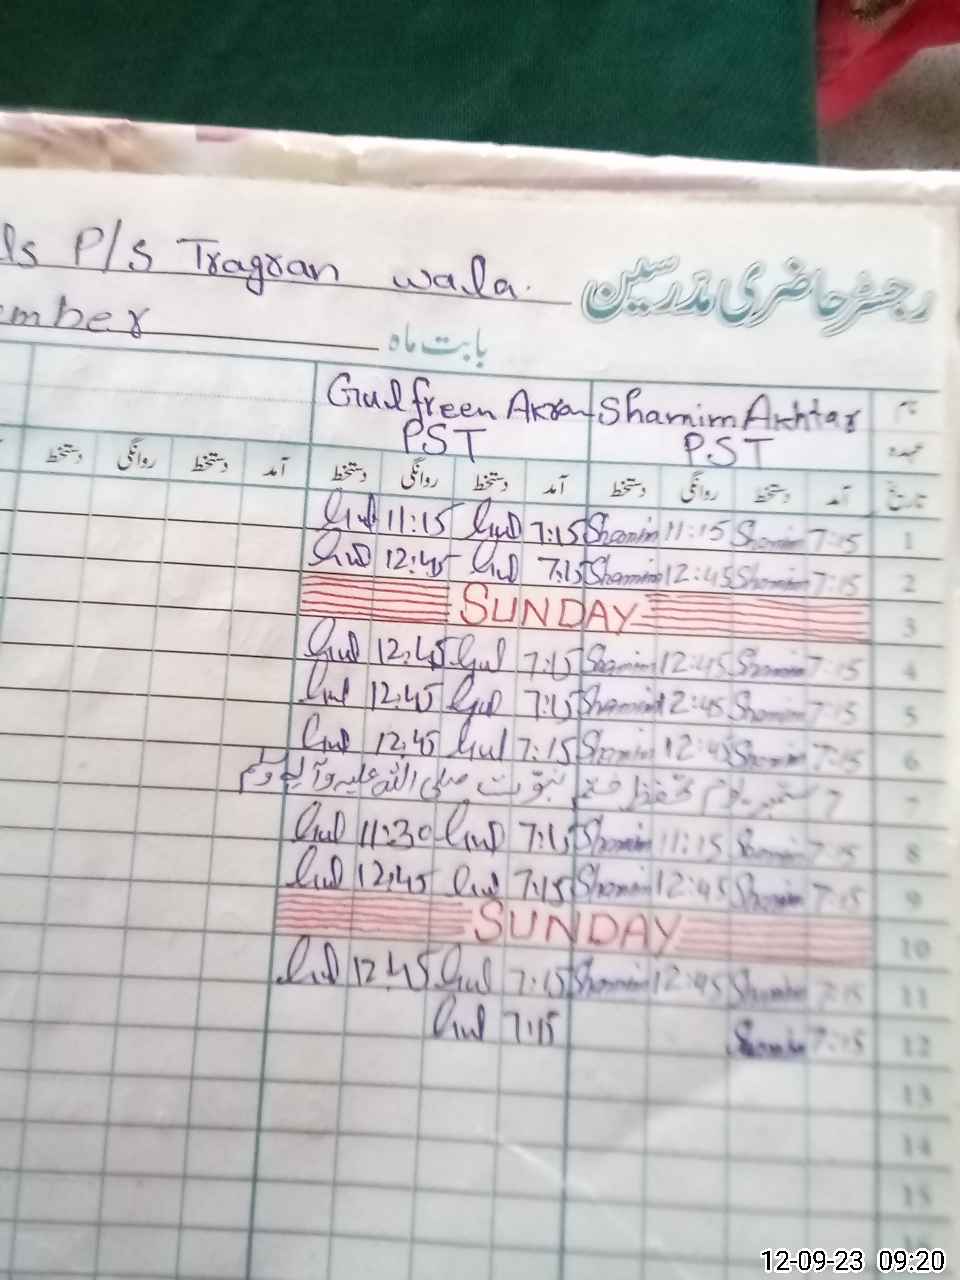 ls P/S Tragran wala.
رجسٹر حاضری مدرسین
ember
بابت ماہ
نام Shamim Akhtar Gulfreen Akran
عہدہ PST PST
تاریخ آمد دستخط روانگی دستخط آمد دستخط روانگی دستخط آمد دستخط روانگی دستخط
1 7:15 Shamim 11:15 Shamim 7:15 Gul 11:15 Gul
2 7:15 Shamim 12:45 Shamim 7:15 Gul 12:45 Gul
3 SUNDAY
4 7:15 Shamim 12:45 Shamim 7:15 Gul 12:45 Gul
5 7:15 Shamim 12:45 Shamim 7:15 Gul 12:45 Gul
6 7:15 Shamim 12:45 Shamim 7:15 Gul 12:45 Gul
7 7 ستمبر یوم تحفظ ختم نبوت صلی اللہ علیہ وآلہ وسلم
8 7:15 Shamim 11:15 Shamim 7:15 Gul 11:30 Gul
9 7:15 Shamim 12:45 Shamim 7:15 Gul 12:45 Gul
10 SUNDAY
11 7:15 Shamim 12:45 Shamim 7:15 Gul 12:45 Gul
12 7:15 Shamim 7:15 Gul
13
14
15
16
12-09-23 09:20